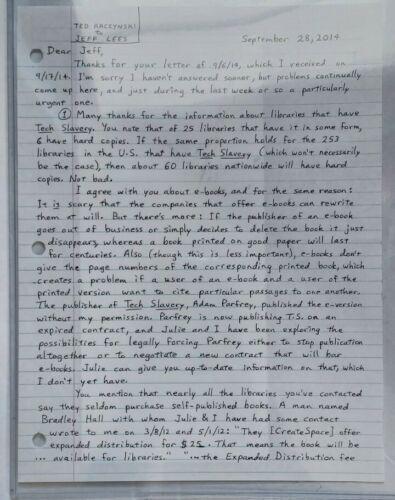 TED KACZYNSKI
to
JEFF LEES
September 28, 2014
Dear Jeff,
Thanks for your letter of 9/6/14, which I received on
9/17/14. I'm sorry I haven't answered sooner, but problems continually
come up here, and just during the last week or so a particularly
urgent one.
① Many thanks for the information about libraries that have
Tech Slavery. You note that of 25 libraries that have it in some form,
6 have hard copies. If the same proportion holds for the 253
libraries in the U.S. that have Tech Slavery (which won't necessarily
be the case), then about 60 libraries nationwide will have hard
copies. Not bad.
I agree with you about e-books, and for the same reason:
It is scary that the companies that offer e-books can rewrite
them at will. But there's more: If the publisher of an e-book
goes out of business or simply decides to delete the book it just
disappears, whereas a book printed on good paper will last
for centuries. Also (though this is less important), e-books don't
give the page numbers of the corresponding printed book, which
creates a problem if a user of an e-book and a user of the
printed version want to cite particular passages to one another.
The publisher of Tech Slavery, Adam Parfrey, published the e-version
without my permission. Parfrey is now publishing T.S. on an
expired contract, and Julie and I have been exploring the
possibilities for legally forcing Parfrey either to stop publication
altogether or to negotiate a new contract that will bar
e-books. Julie can give you up-to-date information on that, which
I don't yet have.
You mention that nearly all the libraries you've contacted
say they seldom purchase self-published books. A man named
Bradley Hall with whom Julie & I have had some contact
wrote to me on 3/8/12 and 5/1/12: "They [CreateSpace] offer
expanded distribution for $25. That means the book will be
... available for libraries." "...the Expanded Distribution fee